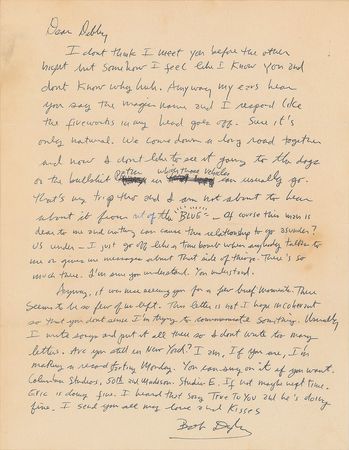 Dear Debby,
I dont think I meet you before the other
night but somehow I feel like I know you and
dont know why huh. Anyway my ears hear
you say the magic name and I respond like
the fireworks in my head goes off. Sure it's
only natural. We come down a long road together
and now I dont like to see it going to the dogs
or the bullshit in where those vehicles can usually go.
That's my trip tho and I am not about to hear
about it from out of the "BLUE" - Of course this man is
dear to me and nothing can cause this relationship to go asunder?
Us under - I just go off like a time bomb when anybody talks to
me or gives me messages about that side of things. There's so
much there. I'm sure you understand. You understand.
Anyway, it was nice seeing you for a few brief moments. There
seems to be so few of us left. This letter is not I hope incoherent
so that you dont since I'm trying to communicate something. Usually
I write songs and put it all there so I dont write too many
letters. Are you still in New York? I am. If you are, I'm
making a record starting Monday. You can sing on it if you want.
Columbia Studios, 50th and Madison Studio E. If not maybe next time.
Eric is doing fine. I heard that song True To You and he's doing
fine. I send you all my love and kisses
Bob Dylan